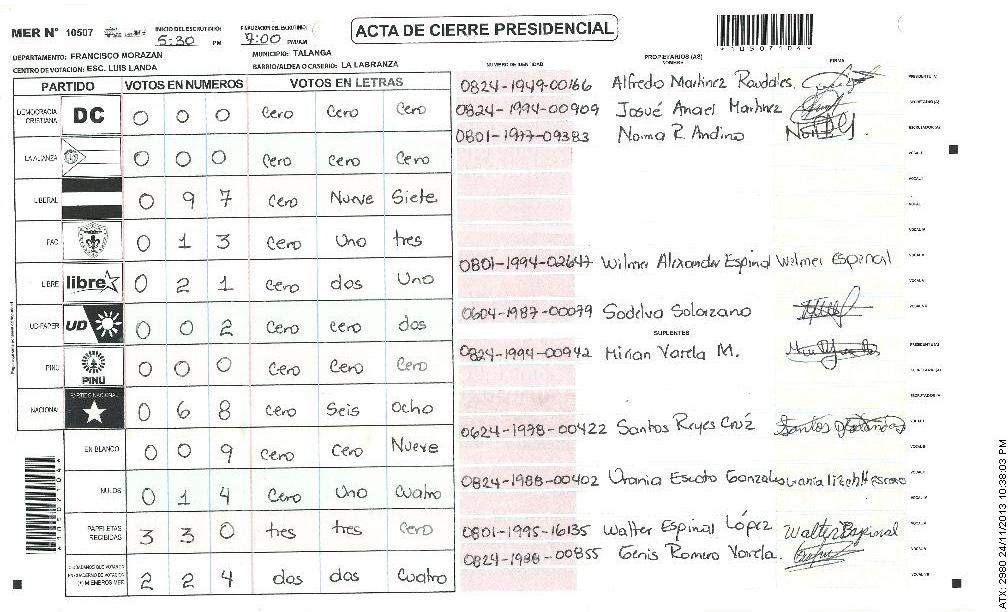 MER N° 10507 INICIO DEL ESCRUTINIO: 5:30 PM FINALIZACION DEL ESCRUTINIO: 7:00 PM/AM ACTA DE CIERRE PRESIDENCIAL
DEPARTAMENTO: FRANCISCO MORAZAN MUNICIPIO: TALANGA
CENTRO DE VOTACION: ESC. LUIS LANDA BARRIO/ALDEA O CASERIO: LA LABRANZA
PARTIDO VOTOS EN NUMEROS VOTOS EN LETRAS NUMERO DE IDENTIDAD PROPIETARIOS (AS) NOMBRE FIRMA
DEMOCRACIA CRISTIANA DC 0 0 0 cero cero cero
LA ALIANZA 0 0 0 cero cero cero
LIBERAL 0 9 7 cero Nueve Siete
PAC 0 1 3 cero Uno tres
LIBRE libre 0 2 1 cero dos Uno
UD-FAPER UD 0 0 2 cero cero dos
PINU PINU 0 0 0 cero cero cero
NACIONAL PARTIDO NACIONAL 0 6 8 cero Seis ocho
EN BLANCO 0 0 9 cero cero Nueve
NULOS 0 1 4 cero Uno cuatro
PAPELETAS RECIBIDAS 3 3 0 tres tres cero
CIUDADANOS QUE VOTARON EN CUADERNO DE VOTACION (+) MIEMBROS MER 2 2 4 dos dos cuatro
0824-1949-00166 Alfredo Martinez Raudales. PRESIDENTE (A)
0824-1994-00909 Josué Anael Martinez SECRETARIO (A)
0801-1977-09383 Norma R. Andino ESCRUTADOR (A)
0801-1994-02647 Wilmer Alexander Espinal Wilmer Espinal
0604-1987-00079 Sodelva Solorzano
SUPLENTES
0824-1994-00942 Mirian Varela M. PRESIDENTE (A)
SECRETARIO (A)
ESCRUTADOR (A)
0624-1978-00422 Santos Reyes Cruz
0824-1988-00402 Urania Escoto Gonzales
0801-1995-16135 Walter Espinal López Walter Espinal
0824-1988-00855 Genis Romero Varela.
ATX: 2980 24/11/2013 10:38:03 PM